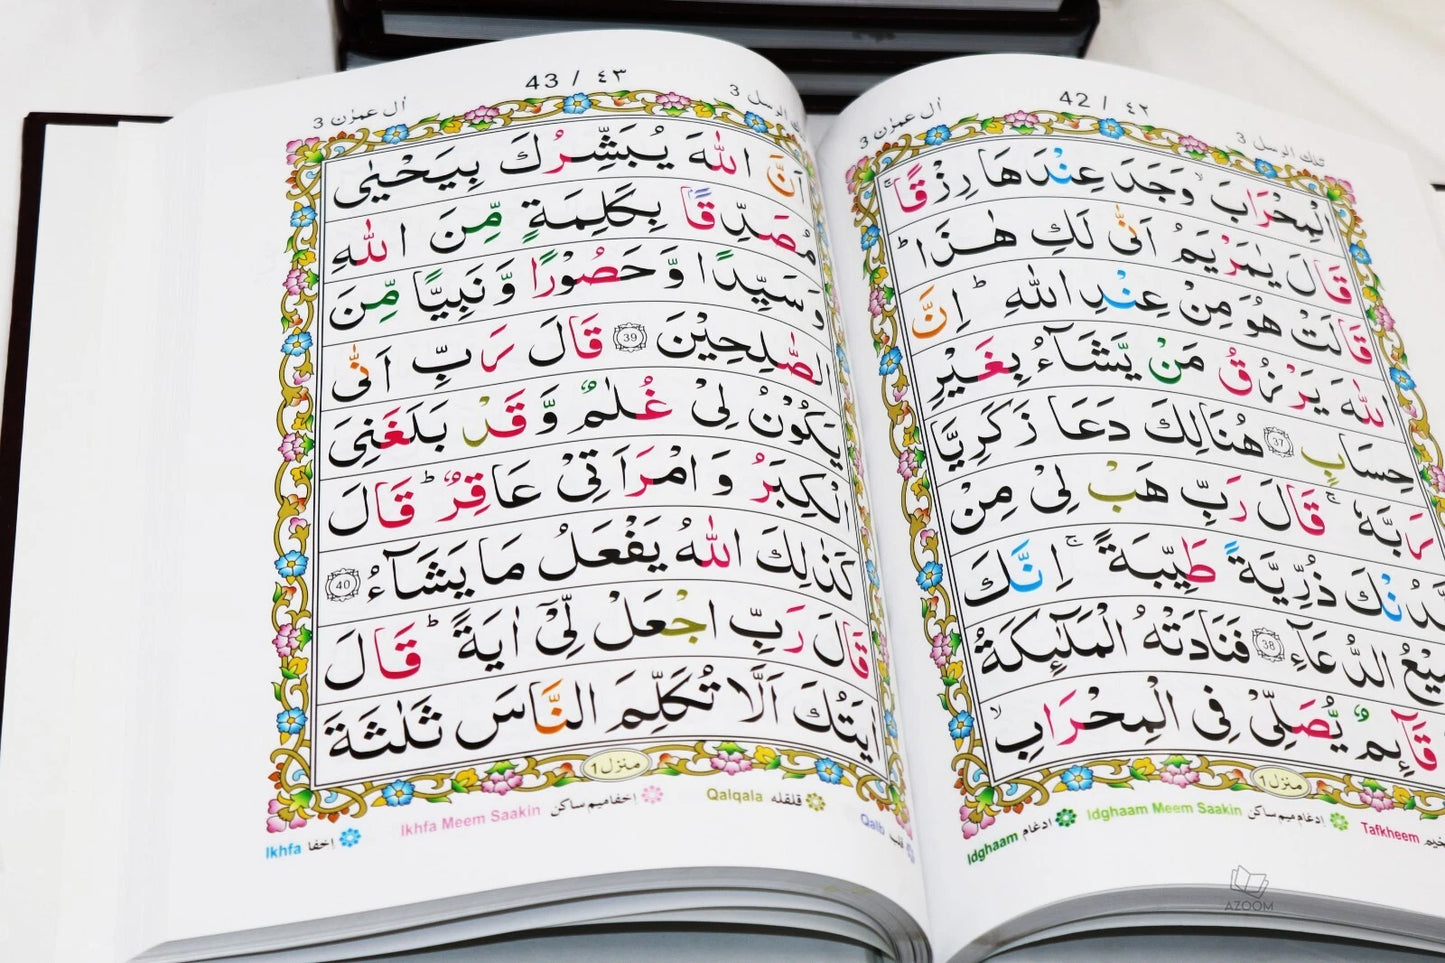 42 / ٤٢
اٰل عمرٰن 3
تلك الرسل 3
الْمِحْرَابَ ۙ وَجَدَ عِنْدَهَا رِزْقًا ۚ
قَالَ يٰمَرْيَمُ اَنّٰى لَكِ هٰذَا ؕ
قَالَتْ هُوَ مِنْ عِنْدِ اللّٰهِ ؕ اِنَّ
اللّٰهَ يَرْزُقُ مَنْ يَّشَآءُ بِغَيْرِ
حِسَابٍ 37 هُنَالِكَ دَعَا زَكَرِيَّا
رَبَّهٗ ۚ قَالَ رَبِّ هَبْ لِىْ مِنْ
لَّدُنْكَ ذُرِّيَّةً طَيِّبَةً ۚ اِنَّكَ
الدُّعَآءِ 38 فَنَادَتْهُ الْمَلٰٓئِكَةُ
قَآئِمٌ يُّصَلِّىْ فِى الْمِحْرَابِ ۙ
منزل 1
Idghaam ادغام Idghaam Meem Saakin ادغام میم ساکن Tafkheem
43 / ٤٣
اٰل عمرٰن 3
الرسل 3
اَنَّ اللّٰهَ يُبَشِّرُكَ بِيَحْيٰى
مُصَدِّقًا بِكَلِمَةٍ مِّنَ اللّٰهِ
وَسَيِّدًا وَّحَصُوْرًا وَّنَبِيًّا مِّنَ
الصّٰلِحِيْنَ 39 قَالَ رَبِّ اَنّٰى
يَكُوْنُ لِىْ غُلٰمٌ وَّقَدْ بَلَغَنِىَ
الْكِبَرُ وَامْرَاَتِىْ عَاقِرٌ ؕ قَالَ
كَذٰلِكَ اللّٰهُ يَفْعَلُ مَا يَشَآءُ 40
قَالَ رَبِّ اجْعَلْ لِّىْٓ اٰيَةً ؕ قَالَ
اٰيَتُكَ اَلَّا تُكَلِّمَ النَّاسَ ثَلٰثَةَ
منزل 1
Ikhfa اخفا Ikhfa Meem Saakin اخفا میم ساکن Qalqala قلقله Qalb قلب
AZOOM